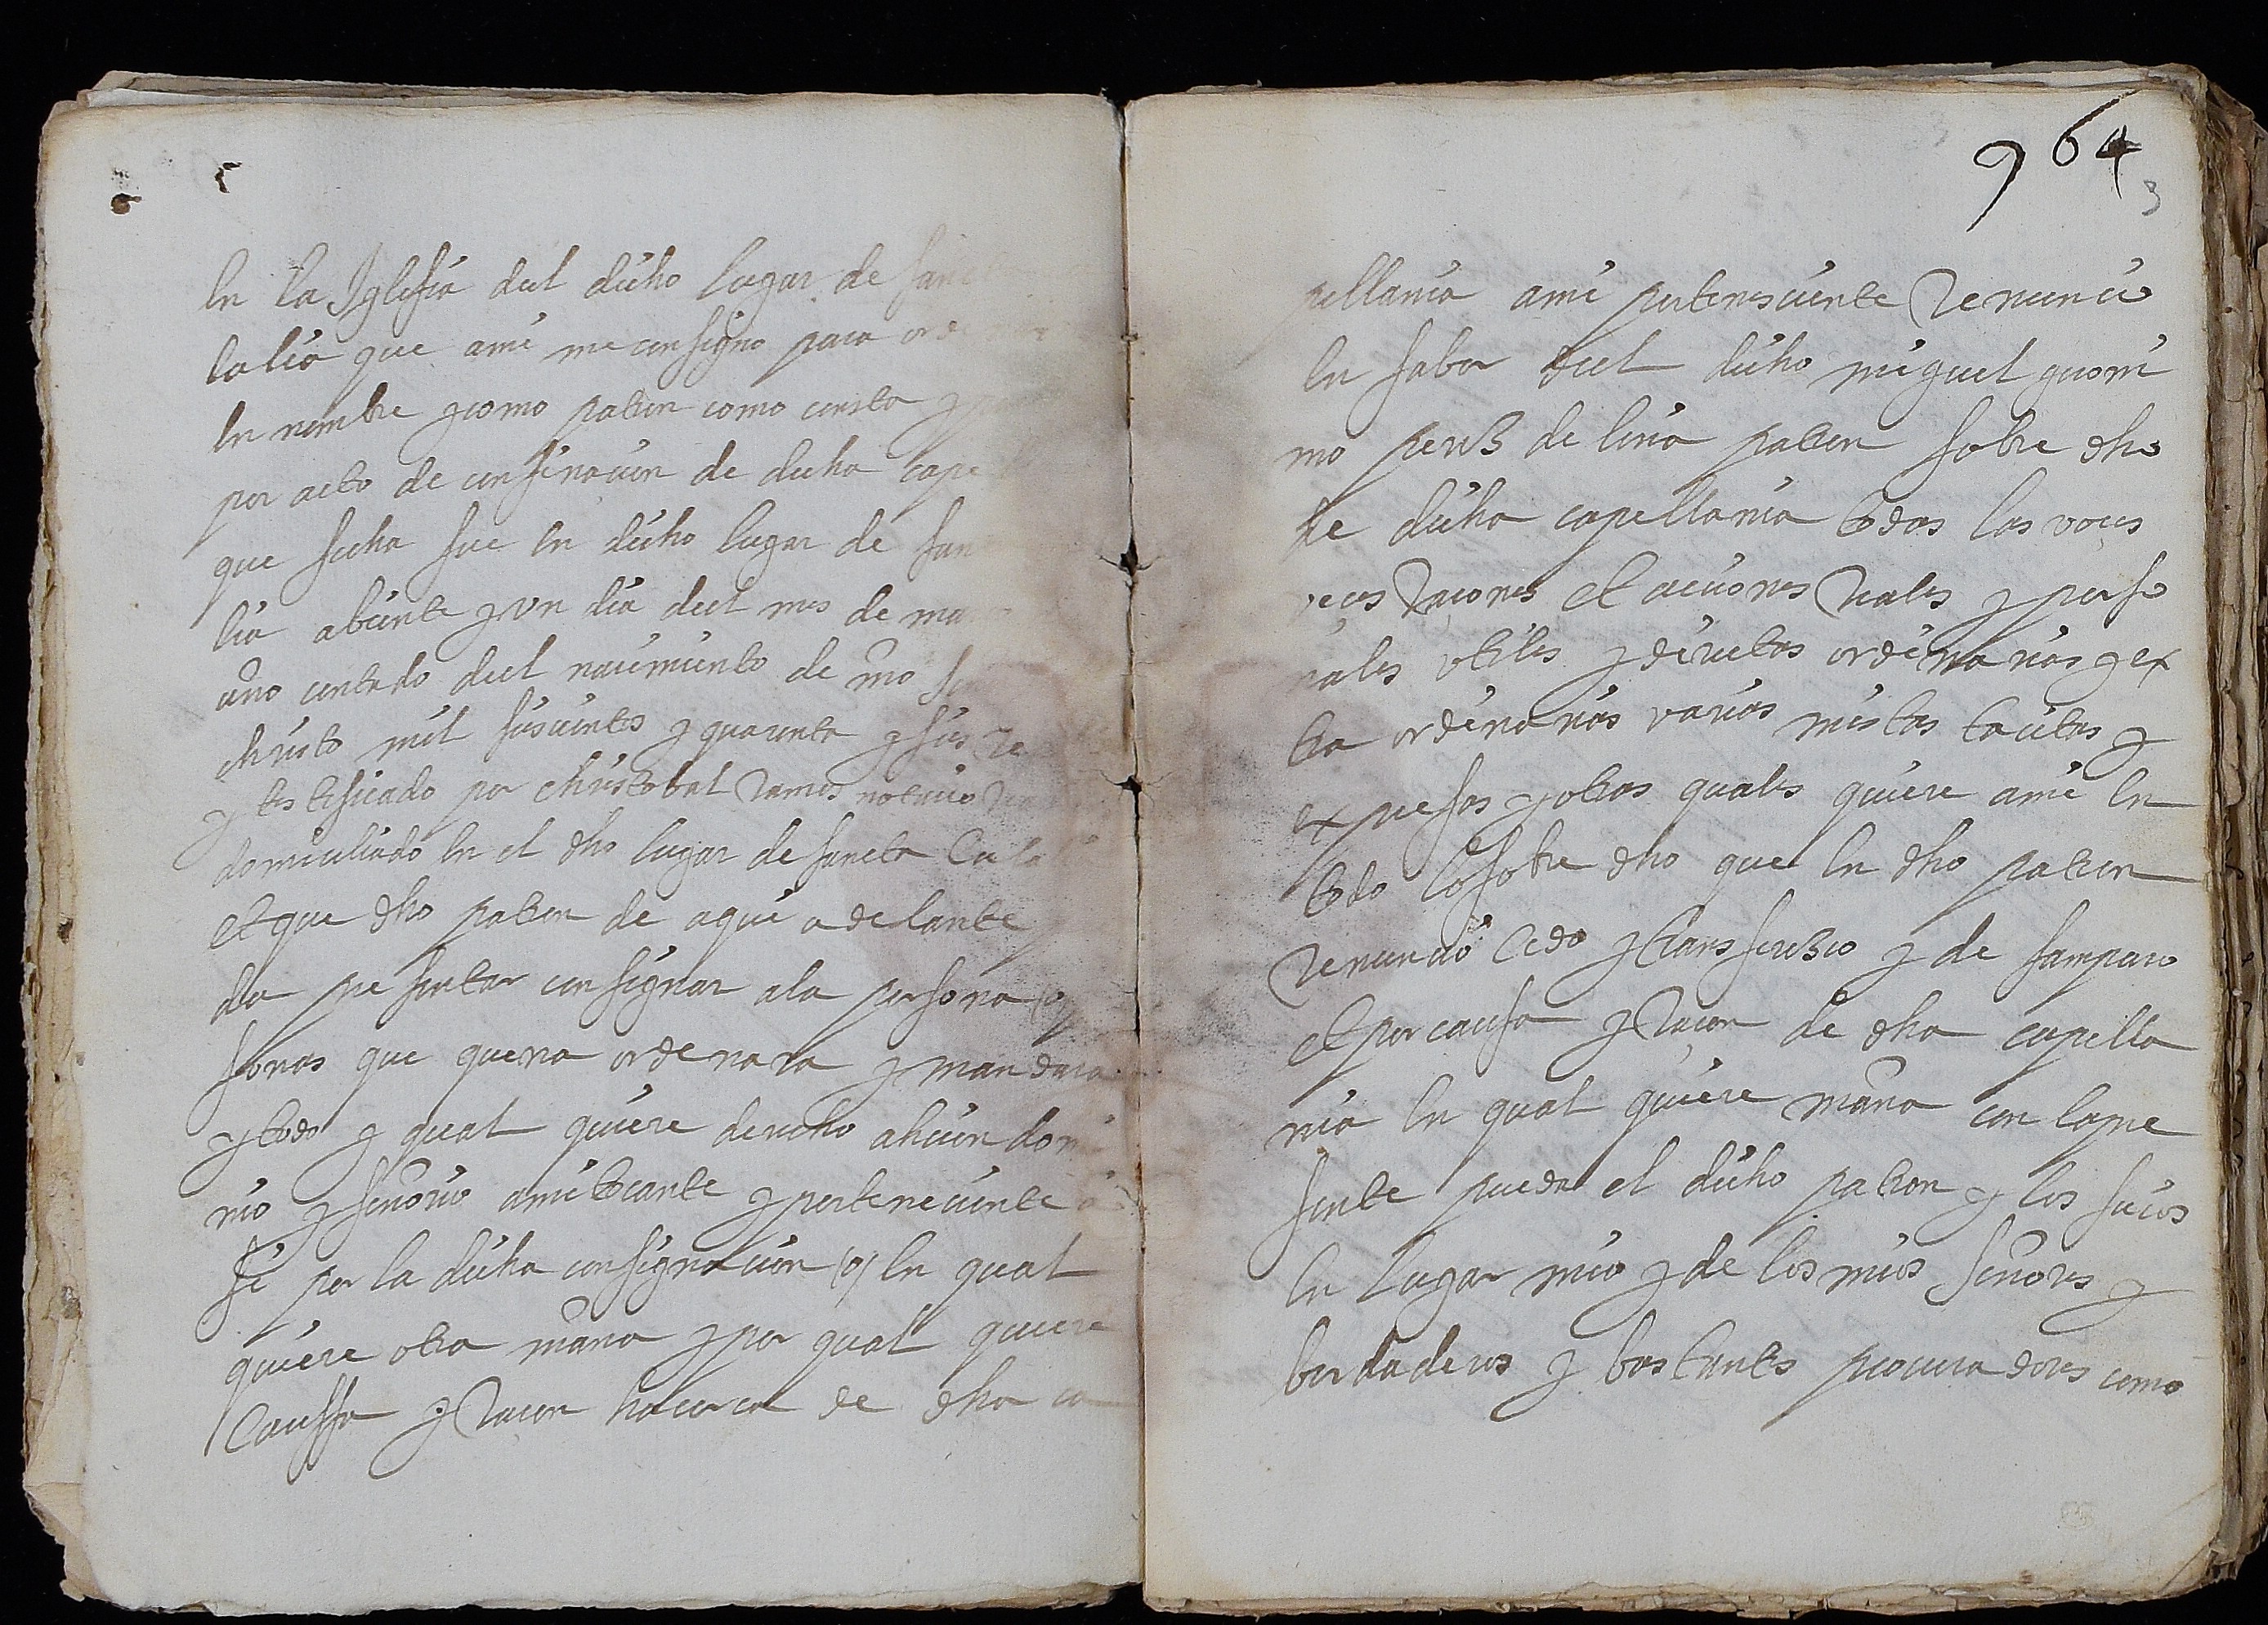 en la Iglesia del dicho lugar de sanct
lalia que ami me consigno para
en nombre y como patron como consta y
por acto de consinacion de dicha cape
que fecha fue en dicho lugar de san
lia abeinte y un dia del mes de ma
año contado del nacimiento de nro
christo mil seiscientos y quarenta y seis
y testificado por christobal Ramos notario
domiciliado en el dho lugar de sancta
el que dho patron de aqui adelante
da presentar consignar ala persona
sonas que querra ordenara y mandara
y todo y qual quiere derecho aheion domi
nio y senorio ami tocante y perteneciente
si por la dicha consignacion (o) en qual
quiere otra mana y por qual quiere
Caussa y Racon hacerca de dha ca
964
3
pellania ami perteneciente Renuncio
en fabor del dicho miguel guoni
mo perez de liria patron sobre dho
de dicha capellania todas las voces
veces Racones et aciones Reales y perso
nales utiles y directas ordinarias y ex
tra ordinarias varias mistas tacitas y
expresas y otras quales quiere ami en
todo lo sobre dho que en dho patron
Renuncio Cedo y transfierzco y de samparo
et por causa y Racon de dha capella
nia en qual quiere mana con la pre
sente pueda el dicho patron y los suios
en lugar mio y de los mios senores y
berdaderos y bastantes procuradores como